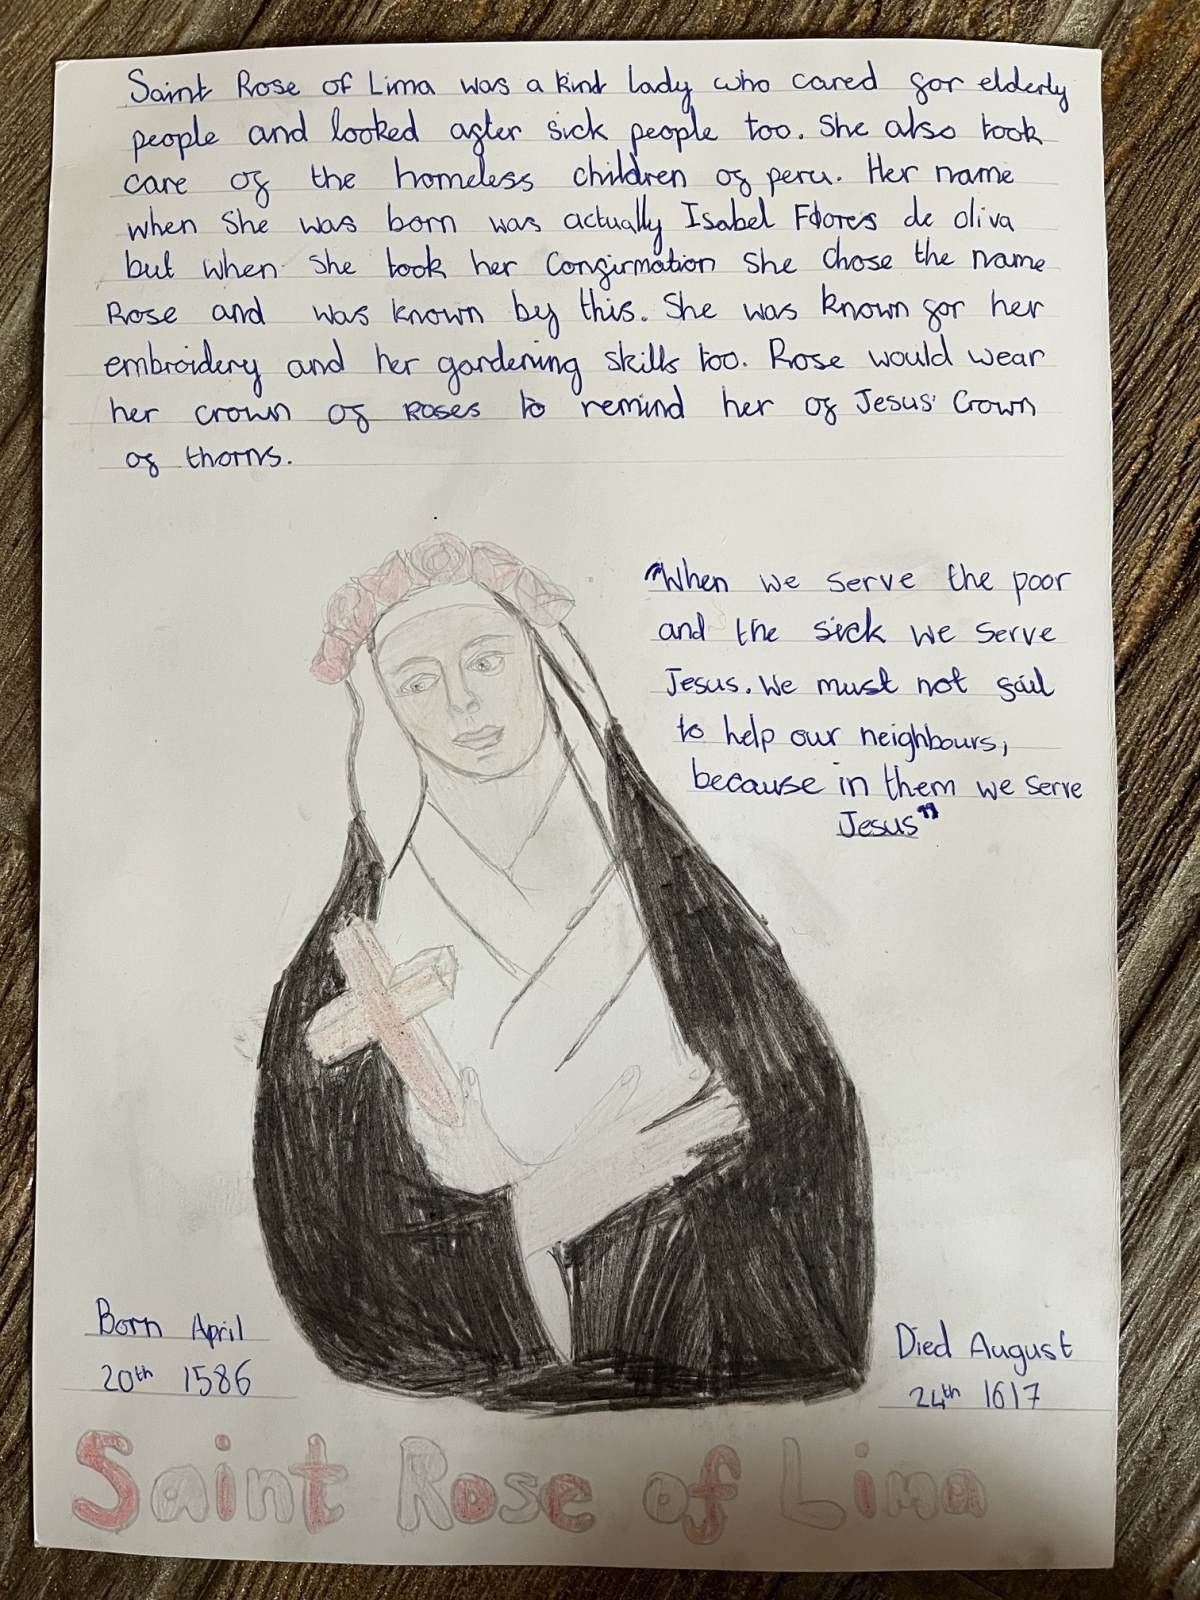 Saint Rose of Lima was a kind lady who cared for elderly
people and looked after sick people too. She also took
care of the homeless children of peru. Her name
when she was born was actually Isabel Flores de oliva
but when she took her Confirmation she chose the name
Rose and was known by this. She was known for her
embroidery and her gardening skills too. Rose would wear
her crown of Roses to remind her of Jesus' Crown
of thorns.
"When we serve the poor
and the sick we serve
Jesus. We must not fail
to help our neighbours,
because in them we serve
Jesus"
Born April
20th 1586
Died August
24th 1617
Saint Rose of Lima